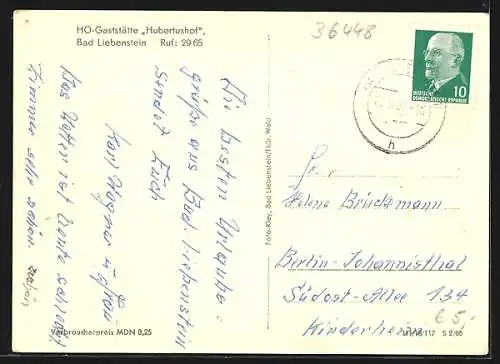 HO-Gaststätte „Hubertushof",
Bad Liebenstein Ruf: 29 65
36448
DEUTSCHE
DEMOKRATISCHE REPUBLIK
10
h
Die besten Urlaubs-
grüße aus Bad Liebenstein
sendet Euch
Karl Wagner u. Frau
Das Wetter ist heute schlecht
Zimmer sehr schön
Foto-Kley, Bad Liebenstein/Thür. Wald
Fr.
Helene Brückmann
Berlin-Johannisthal
Südost-Allee 134
€ 5,-
Kinderheim
Verbraucherpreis MDN 0,25